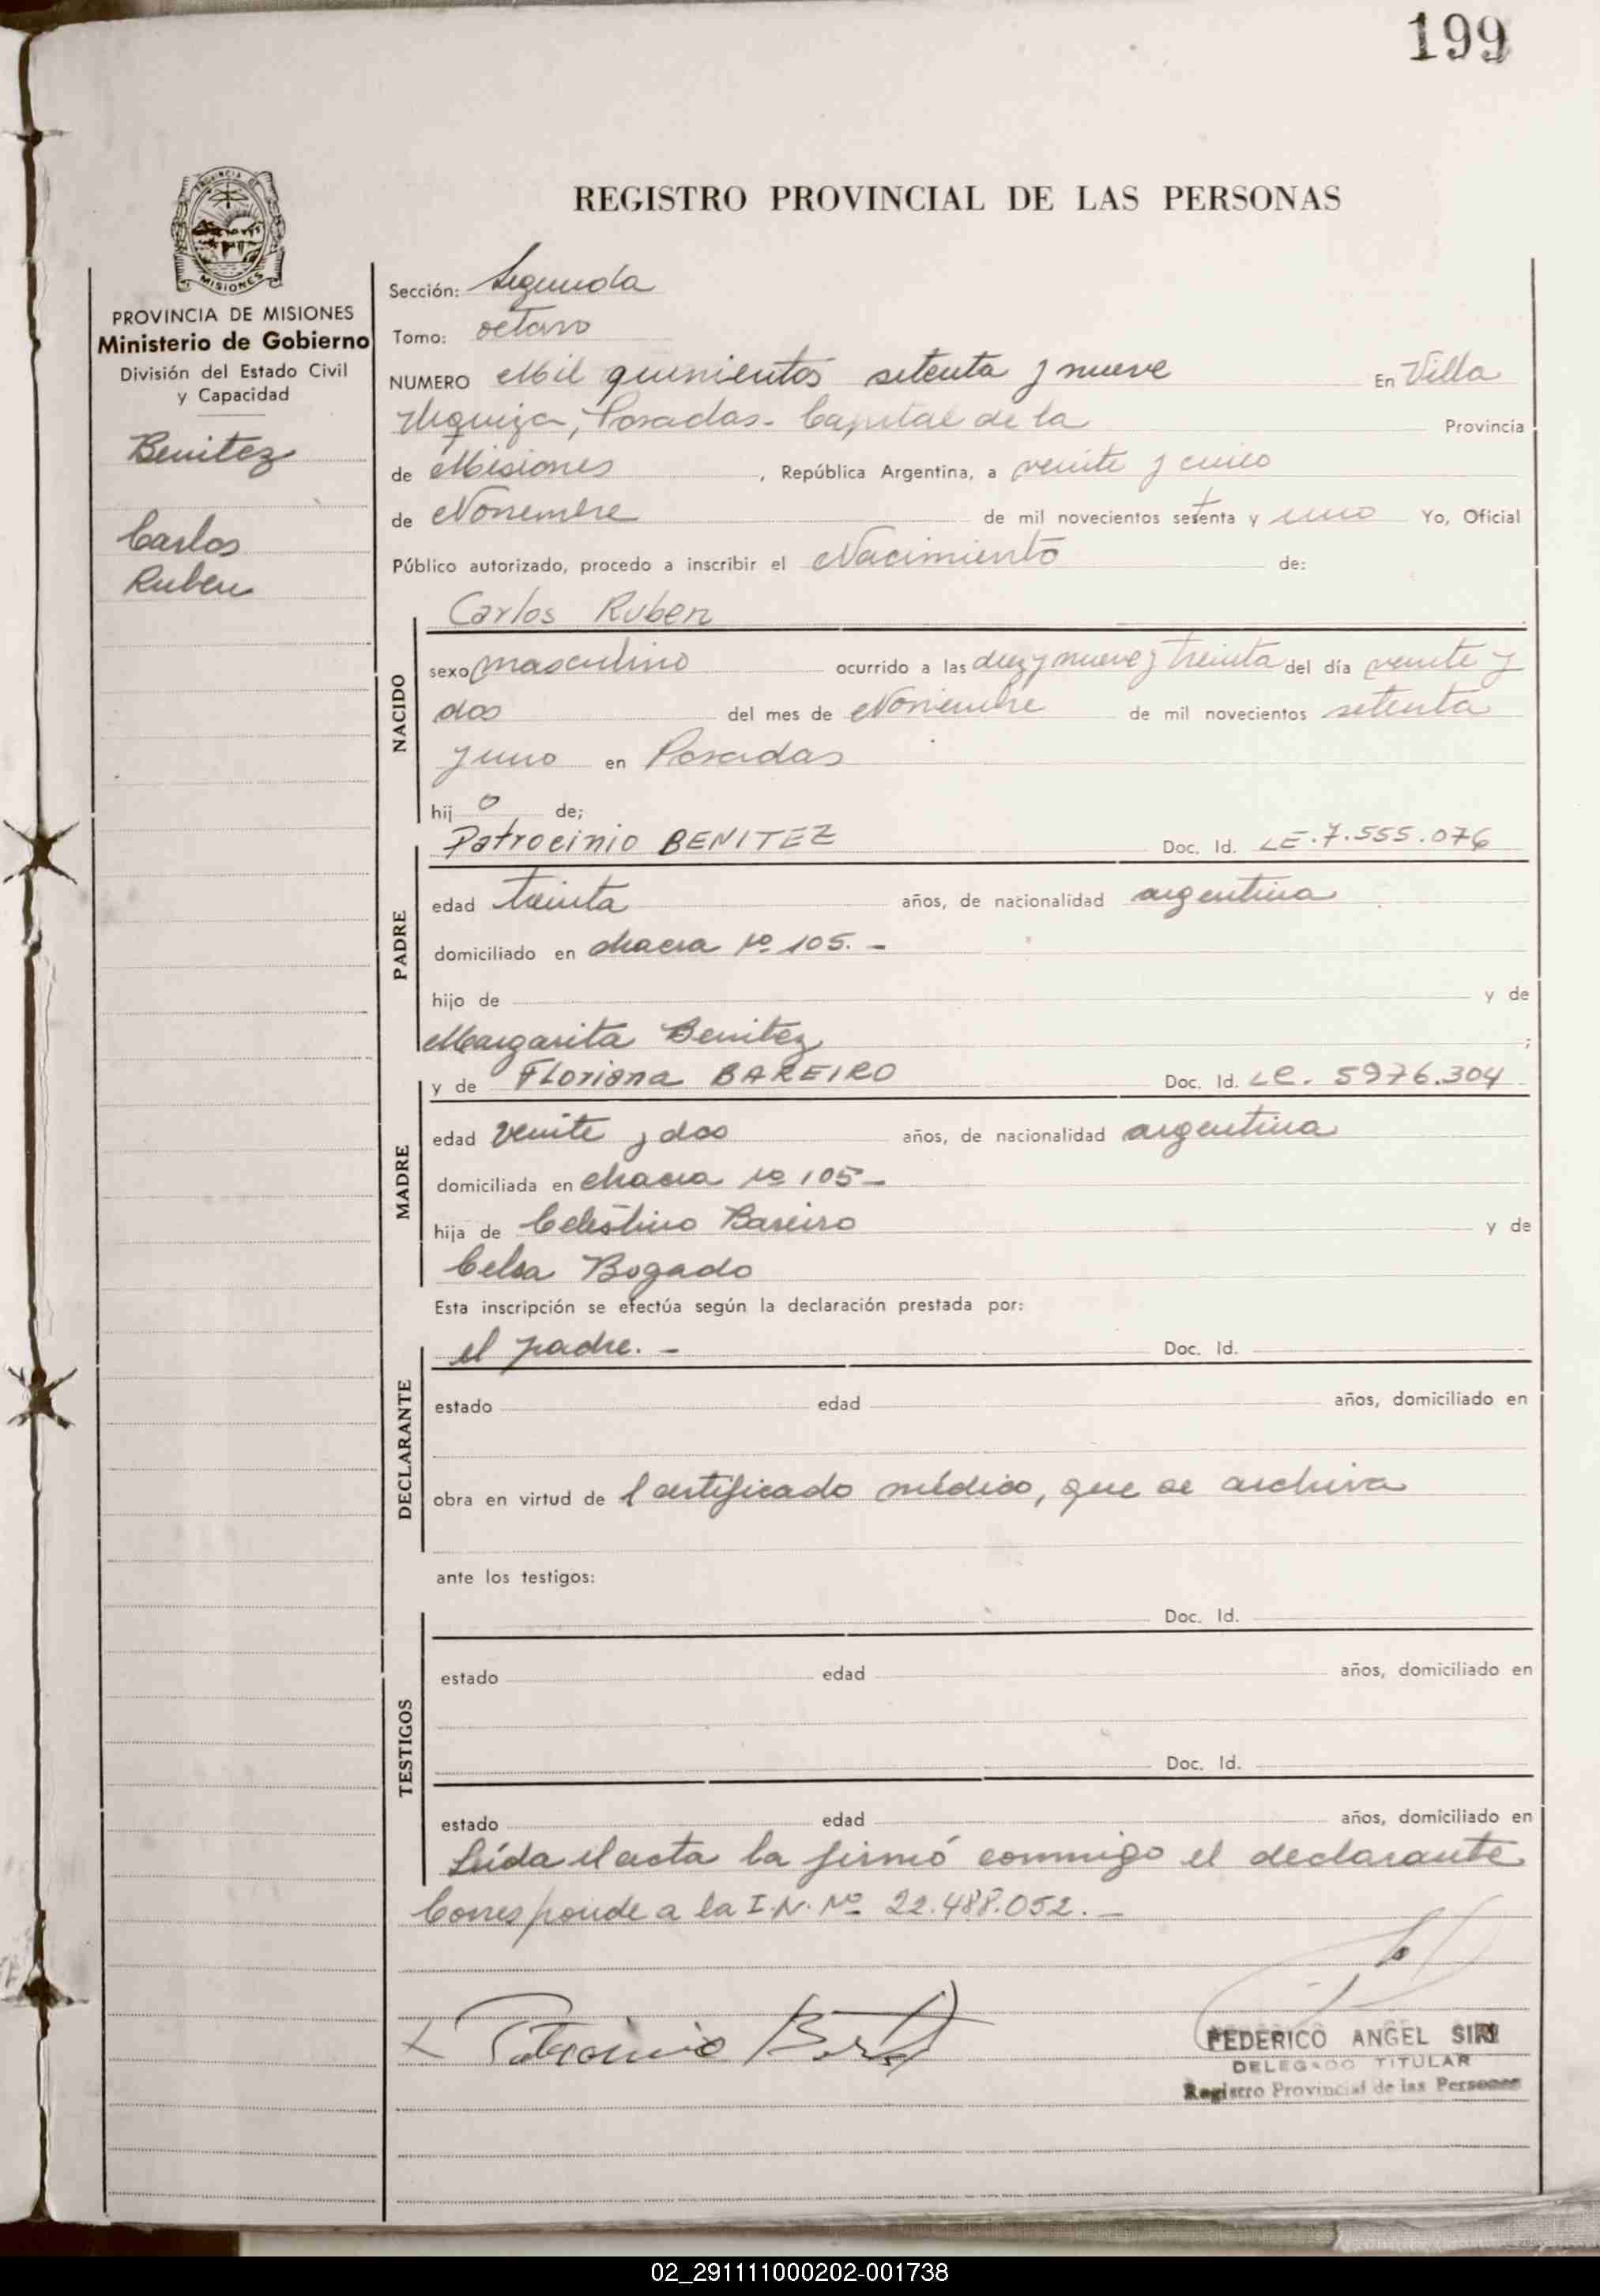 199
REGISTRO PROVINCIAL DE LAS PERSONAS
MISIONES
PROVINCIA DE MISIONES
Ministerio de Gobierno
División del Estado Civil
y Capacidad
Benitez
Carlos
Ruben
Sección: Segunda
Tomo: octavo
NUMERO Mil quinientos setenta y nueve En Villa
Urquiza, Posadas - Capital de la Provincia
de Misiones, República Argentina, a veinte y cinco
de Noviembre de mil novecientos setenta y uno Yo, Oficial
Público autorizado, procedo a inscribir el Nacimiento de:
NACIDO
Carlos Ruben
sexo masculino ocurrido a las diez y nueve y treinta del día veinte y
dos del mes de Noviembre de mil novecientos setenta
y uno en Posadas
hij o de;
PADRE
Patrocinio BENITEZ Doc. Id. LE. 7.555.076
edad treinta años, de nacionalidad argentina
domiciliado en chacra Nº 105. -
hijo de y de
Margarita Benitez ;
MADRE
y de Floriana BAREIRO Doc. Id. LC. 5976.304
edad veinte y dos años, de nacionalidad argentina
domiciliada en chacra Nº 105 -
hija de Celestino Bareiro y de
Celsa Bogado
Esta inscripción se efectúa según la declaración prestada por:
DECLARANTE
el padre. - Doc. Id.
estado edad años, domiciliado en
obra en virtud de l certificado médico, que se archiva
ante los testigos:
TESTIGOS
Doc. Id.
estado edad años, domiciliado en
Doc. Id.
estado edad años, domiciliado en
Leída el acta la firmó conmigo el declarante
Corresponde a la I.N. Nº 22.488.052. -
x Patrocinio
FEDERICO ANGEL SIRI
DELEGADO TITULAR
Registro Provincial de las Personas
02_291111000202-001738